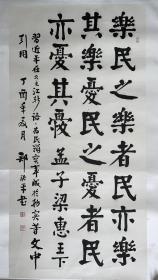 樂民之樂者民亦樂
其樂憂民之憂者民
亦憂其憂 孟子梁惠王下
習近平在之江新語為民辦實事成於務實等文中
引用 丁酉年夏月